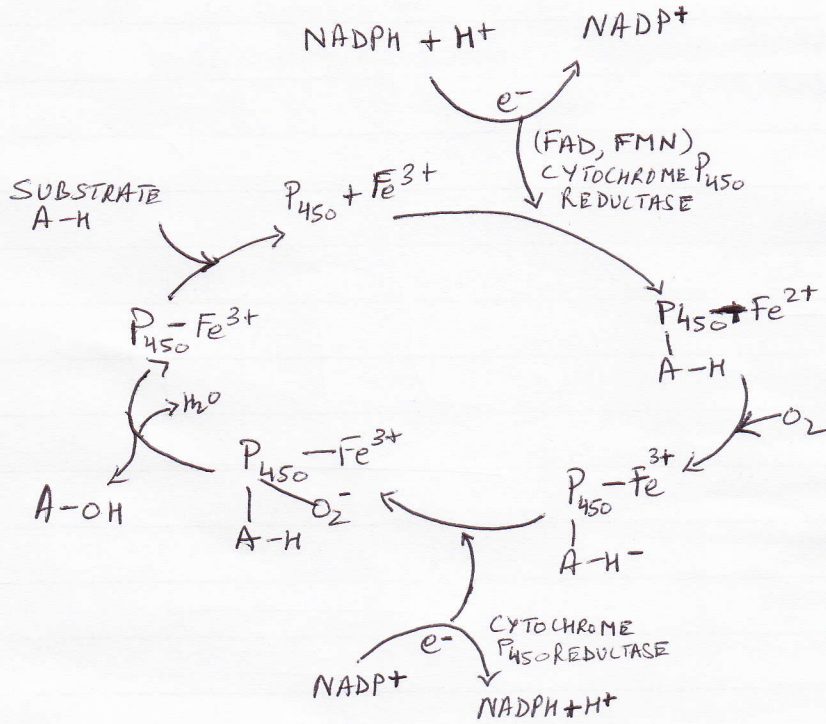 NADPH + H+
NADP+
e-
(FAD, FMN)
CYTOCHROME P450
REDUCTASE
SUBSTRATE
A-H
P450 + Fe3+
P450-Fe3+
P450+Fe2+
A-H
O2
H2O
A-OH
P450-Fe3+
O2-
A-H
P450-Fe3+
A-H-
e-
CYTOCHROME
P450 REDUCTASE
NADP+
NADPH+H+